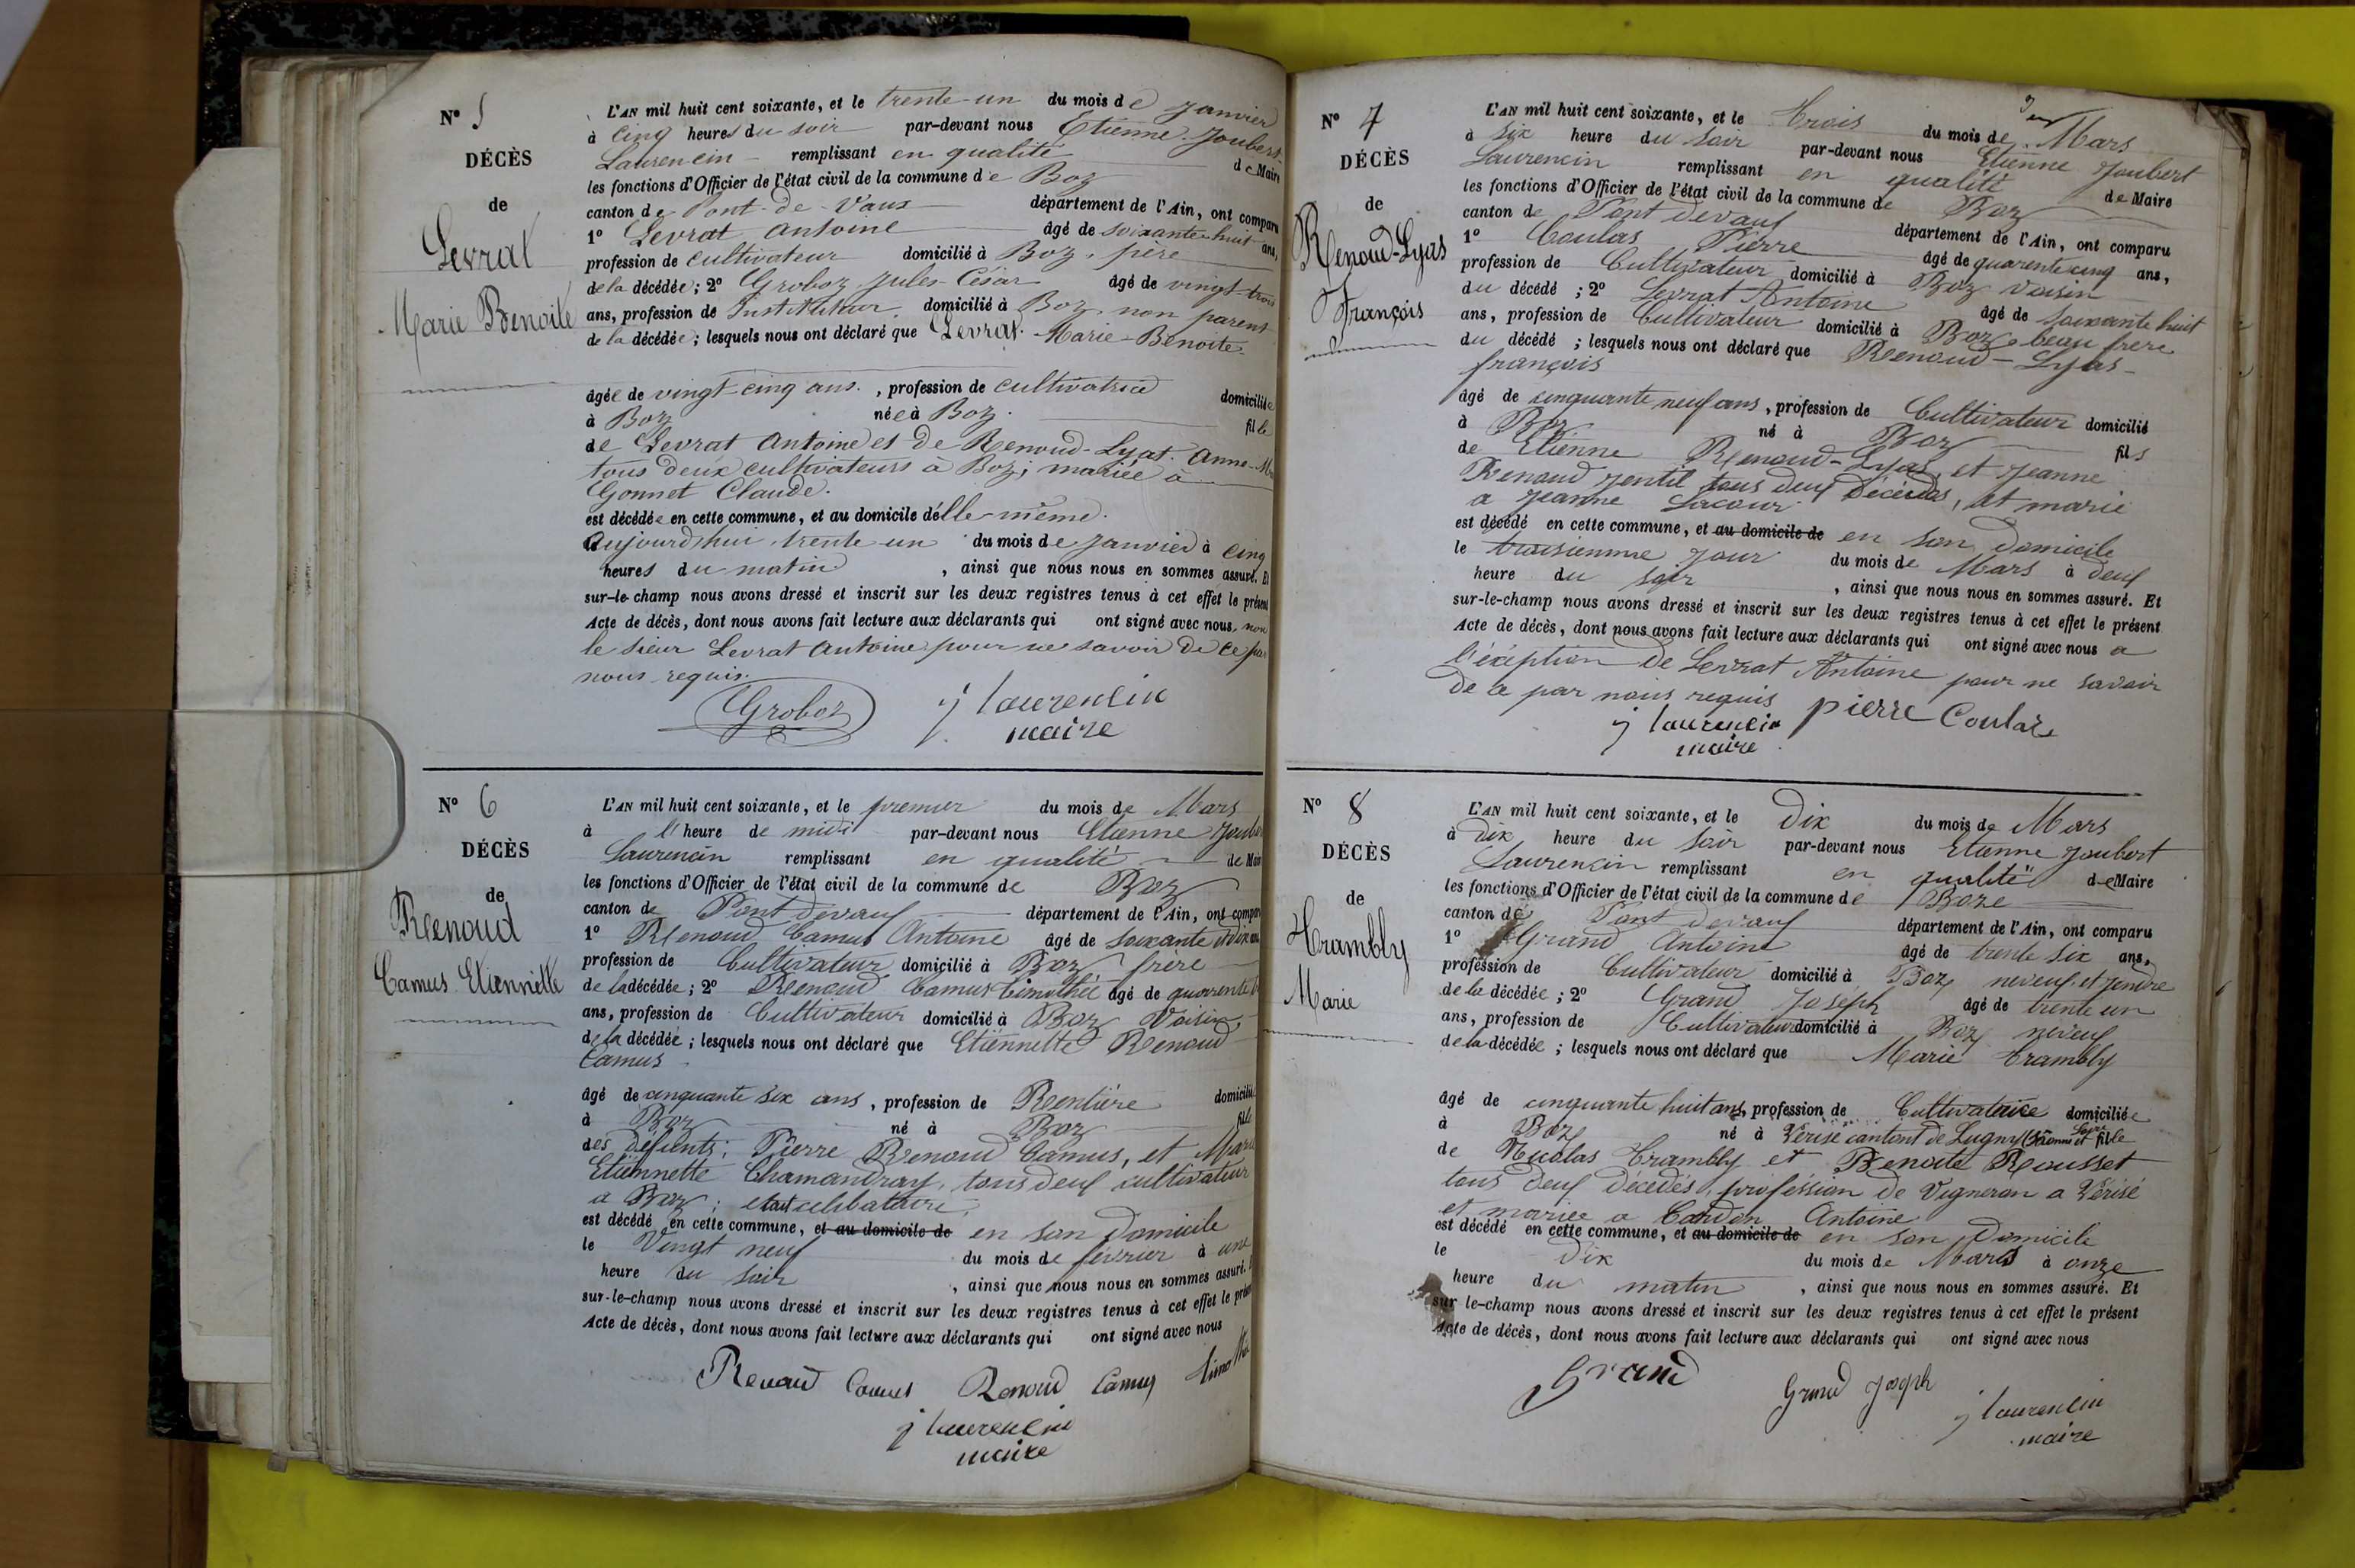 N° 5
DÉCÈS
de
Levrat
Marie Benoite
L'AN mil huit cent soixante, et le trente-un du mois de Janvier
à cinq heures du soir par-devant nous Etienne Joubert-
Laurencin remplissant en qualité de Maire
les fonctions d'Officier de l'état civil de la commune de Boz
canton de Pont-de-Vaux département de l'Ain, ont comparu
1° Levrat Antoine âgé de soixante-huit ans,
profession de cultivateur domicilié à Boz, père
de la décédée; 2° Groboz Jules-César âgé de vingt-trois
ans, profession de Instituteur domicilié à Boz, non parent
de la décédée; lesquels nous ont déclaré que Levrat Marie-Benoite
âgée de vingt-cinq ans, profession de cultivatrice domiciliée
à Boz née à Boz fille
de Levrat Antoine et de Renoud-Lyat Anne-
tous deux cultivateurs à Boz; mariée à
Gonnet Claude.
est décédée en cette commune, et au domicile d'elle-même.
Aujourd'hui trente-un du mois de Janvier à cinq
heures du matin, ainsi que nous nous en sommes assuré. Et
sur-le-champ nous avons dressé et inscrit sur les deux registres tenus à cet effet le présent
Acte de décès, dont nous avons fait lecture aux déclarants qui ont signé avec nous, non
le sieur Levrat Antoine pour ne savoir de ce par
nous requis.
Groboz J Laurencin
maire
N° 6
DÉCÈS
de
Renoud
Camus Etiennette
L'AN mil huit cent soixante, et le premier du mois de Mars
à l'heure de midi par-devant nous Etienne Joubert
Laurencin remplissant en qualité de Maire
les fonctions d'Officier de l'état civil de la commune de Boz
canton de Pont devaux département de l'Ain, ont comparu
1° Renoud Camus Antoine âgé de soixante et dix ans
profession de Cultivateur domicilié à Boz frère
de la décédée; 2° Renoud Camus Timothée âgé de quarente
ans, profession de Cultivateur domicilié à Boz Voisin
de la décédée; lesquels nous ont déclaré que Etiennette Renoud
Camus
âgé de cinquante six ans, profession de Rentière domicilié
à Boz né à Boz fille
des défunts; Pierre Renoud Camus, et Marie
Etiennette Chamandray, tous deux cultivateur
a Boz; etait celibataire,
est décédé en cette commune, et au domicile de en son Domicile
le Vingt neuf du mois de février à une
heure du soir, ainsi que nous nous en sommes assuré.
sur-le-champ nous avons dressé et inscrit sur les deux registres tenus à cet effet le présent
Acte de décès, dont nous avons fait lecture aux déclarants qui ont signé avec nous
Renoud Camus Renoud Camus Timothée
J Laurencin
maire
N° 7
DÉCÈS
de
Renoud-Lyas
François
L'AN mil huit cent soixante, et le Trois du mois de Mars
à six heure du soir par-devant nous Etienne Joubert
Laurencin remplissant en qualité de Maire
les fonctions d'Officier de l'état civil de la commune de Boz
canton de Pont devaux département de l'Ain, ont comparu
1° Coulas Pierre âgé de quarente cinq ans,
profession de Cultivateur domicilié à Boz Voisin
du décédé; 2° Levrat Antoine âgé de soixante huit
ans, profession de Cultivateur domicilié à Boz beau frère
du décédé; lesquels nous ont déclaré que Renoud-Lyas-
françois
âgé de cinquante neuf ans, profession de Cultivateur domicilié
à Boz né à Boz fils
de Etienne Renoud-Lyas, et Jeanne
Renoud Jentil tous deux Décédés, et marié
a Jeanne Lacour
est décédé en cette commune, et au domicile de en son Domicile
le troisiemme Jour du mois de Mars à deux
heure du soir, ainsi que nous nous en sommes assuré. Et
sur-le-champ nous avons dressé et inscrit sur les deux registres tenus à cet effet le présent
Acte de décès, dont nous avons fait lecture aux déclarants qui ont signé avec nous a
l'éxéption de Levrat Antoine pour ne savoir
de ce par nous requis
J Laurencin Pierre Coulas
maire
N° 8
DÉCÈS
de
Trambly
Marie
L'AN mil huit cent soixante, et le Dix du mois de Mars
à Dix heure du soir par-devant nous Etienne Joubert
Laurencin remplissant en qualité de Maire
les fonctions d'Officier de l'état civil de la commune de Boze
canton de Pont devaux département de l'Ain, ont comparu
1° Grand Antoine âgé de trente six ans,
profession de Cultivateur domicilié à Boz neveux et jendre
de la décédée; 2° Grand Joseph âgé de trente un
ans, profession de Cultivateur domicilié à Boz neveux
de la décédée; lesquels nous ont déclaré que Marie Trambly
âgé de cinquante huit ans, profession de Cultivatrice domiciliée
à Boz né à Vérisé cantont de Lugny (Saonne et Loire fille
de Nicolas Trambly et Benoite Rousset
tous deux Décédés, profession de Vigneron a Vérisé
et mariée a Cardon Antoine
est décédé en cette commune, et au domicile de en son Domicile
le dix du mois de Mars à onze
heure du matin, ainsi que nous nous en sommes assuré. Et
sur le-champ nous avons dressé et inscrit sur les deux registres tenus à cet effet le présent
Acte de décès, dont nous avons fait lecture aux déclarants qui ont signé avec nous
Grand Grand Joseph
J Laurencin
maire